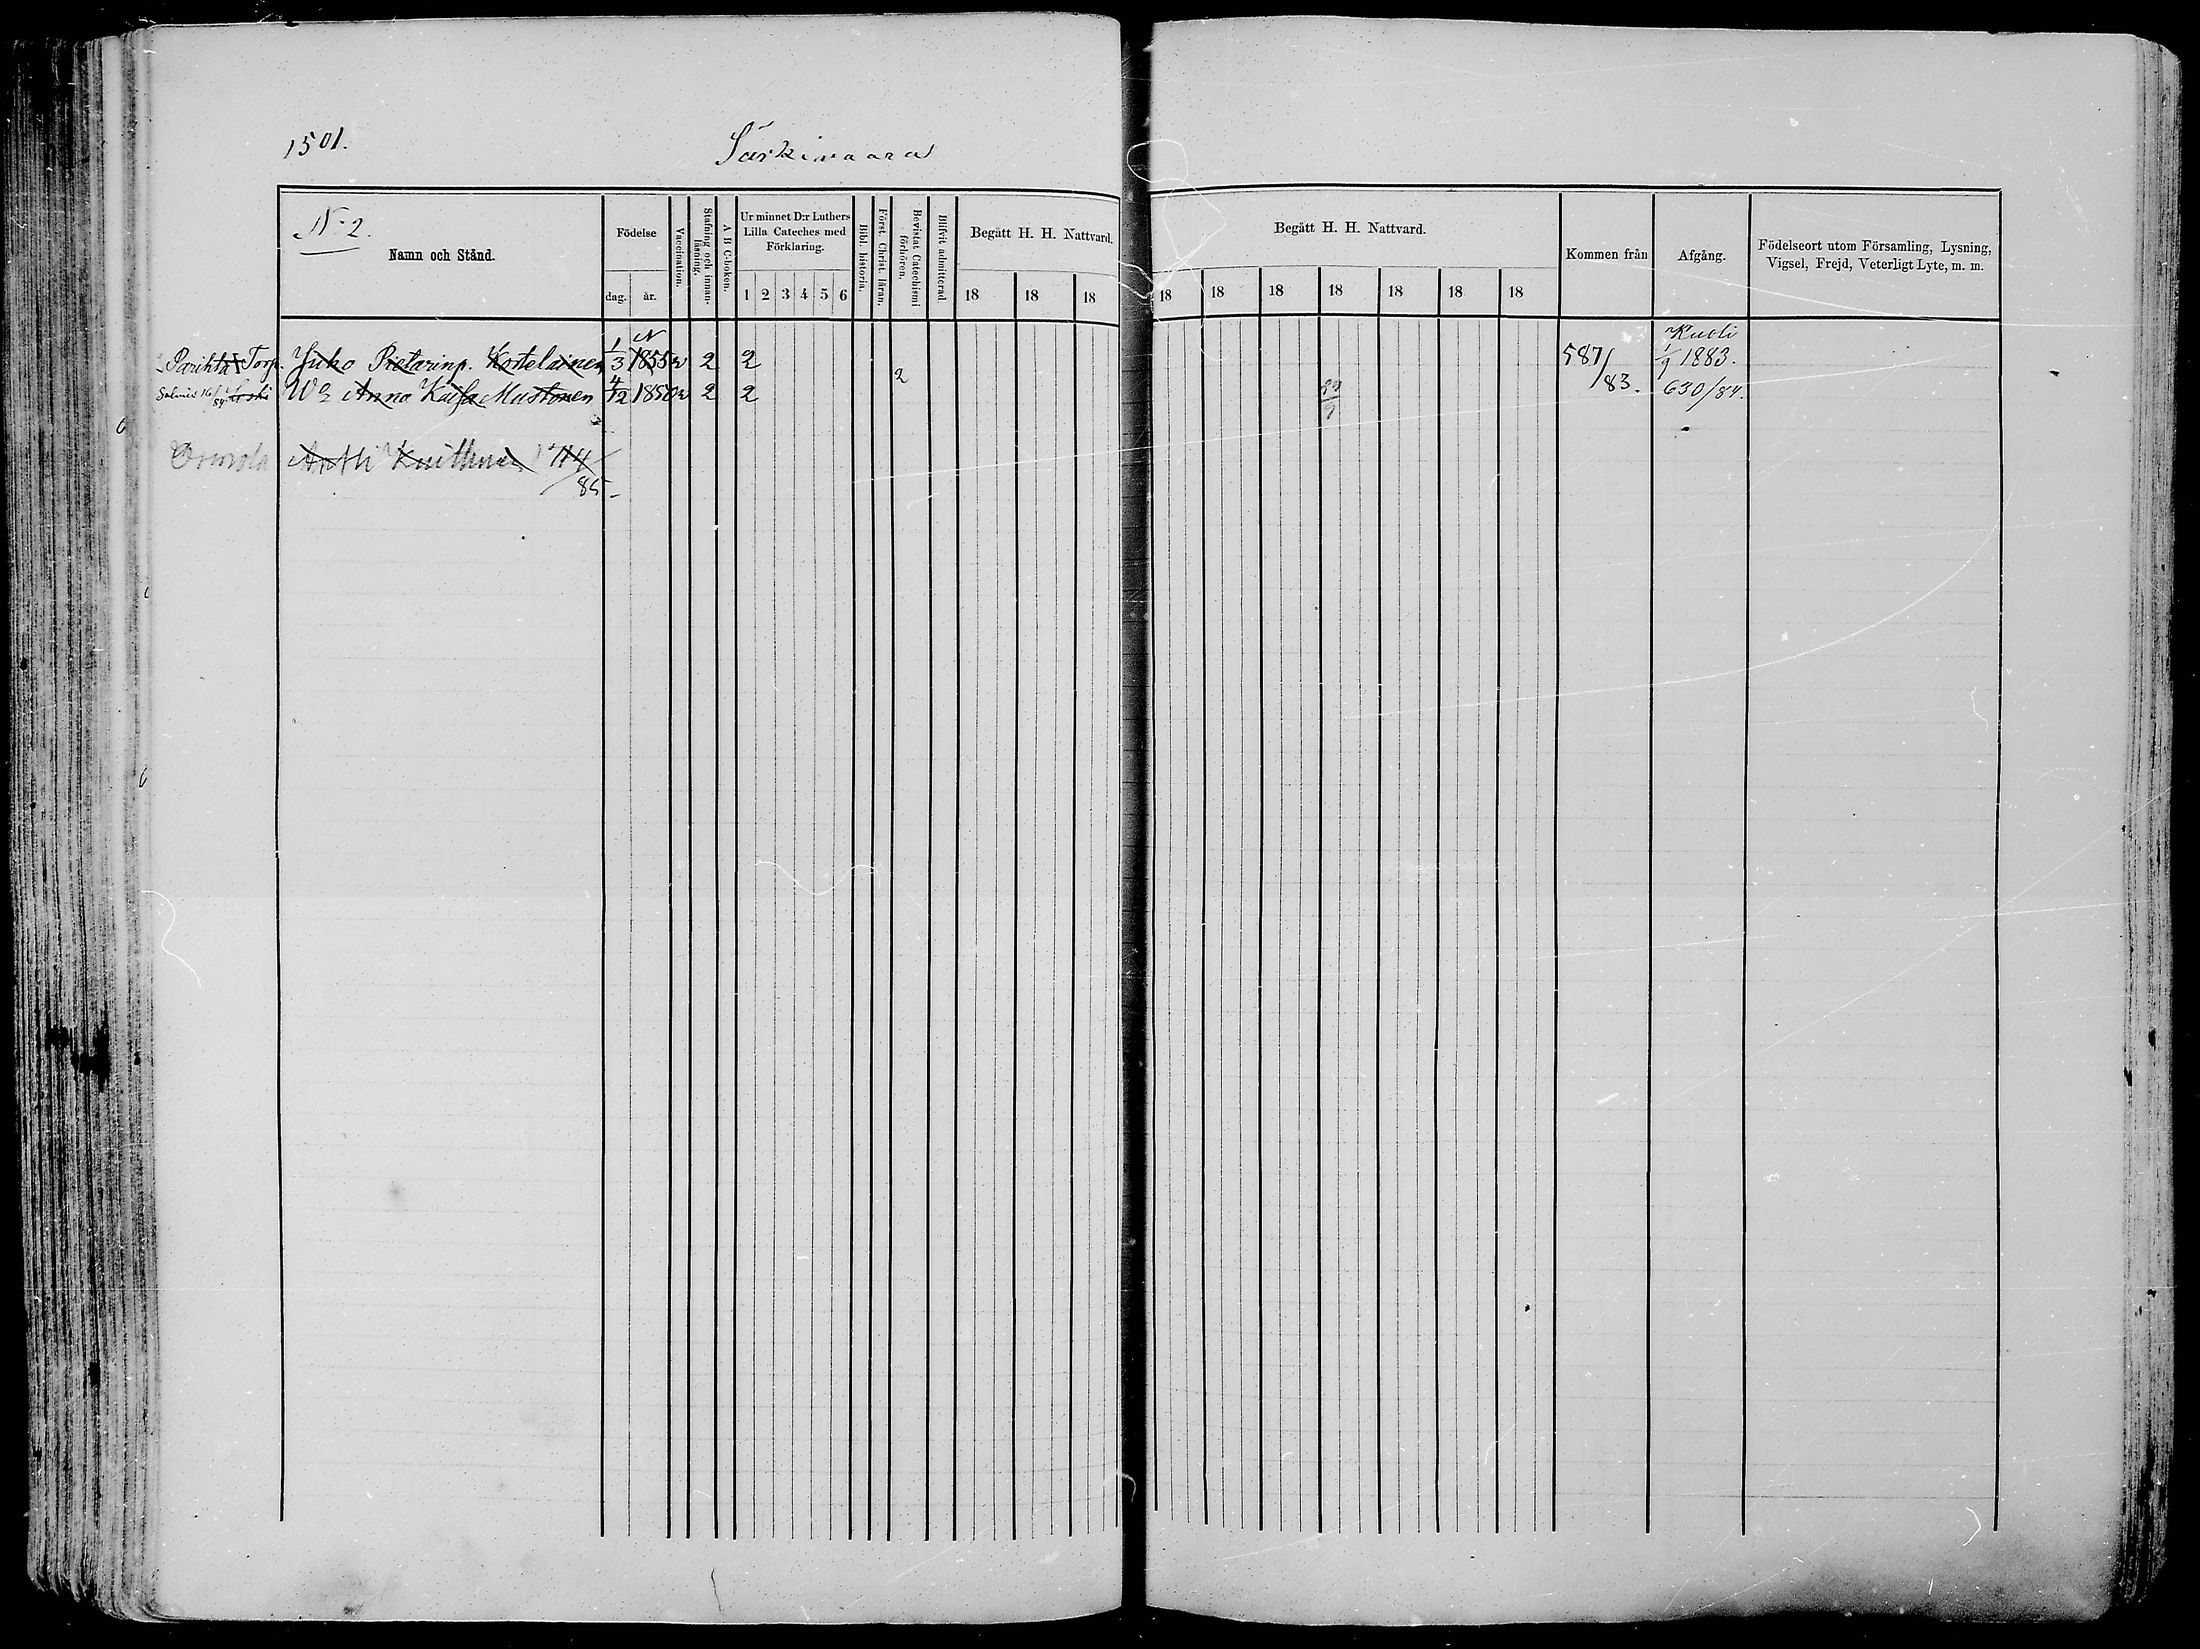 1501. Särkivaara
N:2.
Namn och Stånd.
Födelse
dag. år.
Vaccination.
Stafning och innanläsning.
A B C-boken.
Ur minnet D:r Luthers Lilla Cateches med Förklaring.
1 2 3 4 5 6
Bibl. historia.
Först. Christ. läran.
Bevistat Catechismi förhören.
Blifvit admitterad.
Begått H. H. Nattvard.
18 18 18
Begått H. H. Nattvard.
18 18 18 18 18 18 18
Kommen från
Afgång.
Födelseort utom Församling, Lysning, Vigsel, Frejd, Veterligt Lyte, m. m.
N Kuoli
Torp. Juho Pietarinp. Kostelainen 1/3 1855 v 2 2 587/83. 1/9 1883.
Salmis 16/ 84 Leski W. Anna Kaisa Mustonen 4/12 1850 v 2 2 2 630/84.
Antti 1714/85